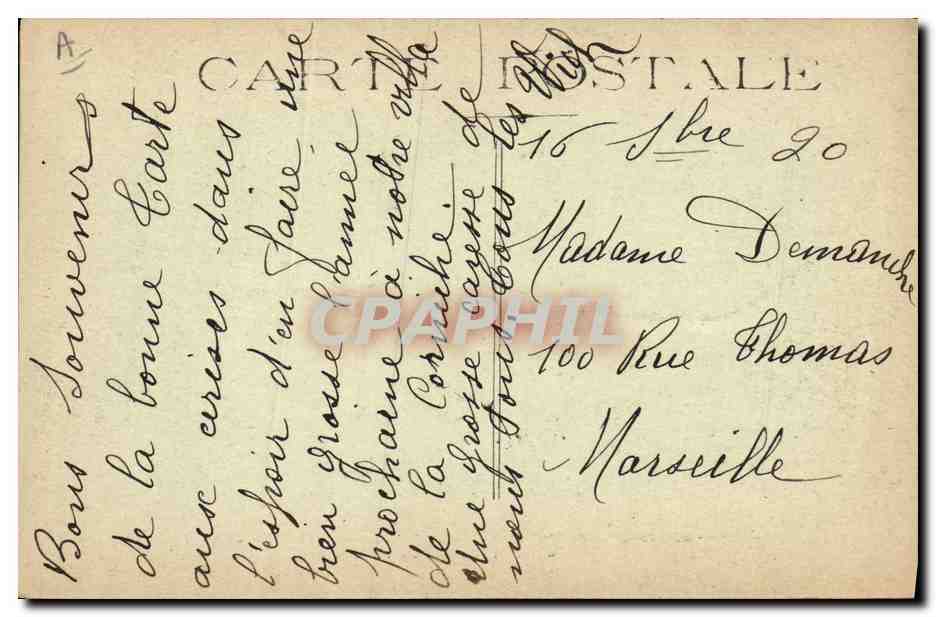 A
CARTE POSTALE
16 Sbre 20
Madame Demanche
100 Rue Thomas
Marseille
Bons Souvenirs
de la bonne Tarte
aux cerises dans
l'espoir d'en faire une
bien grosse l'année
prochaine à notre villa
de la Corniche.
Une grosse caresse de
nous pour tous les
CPAPHIL